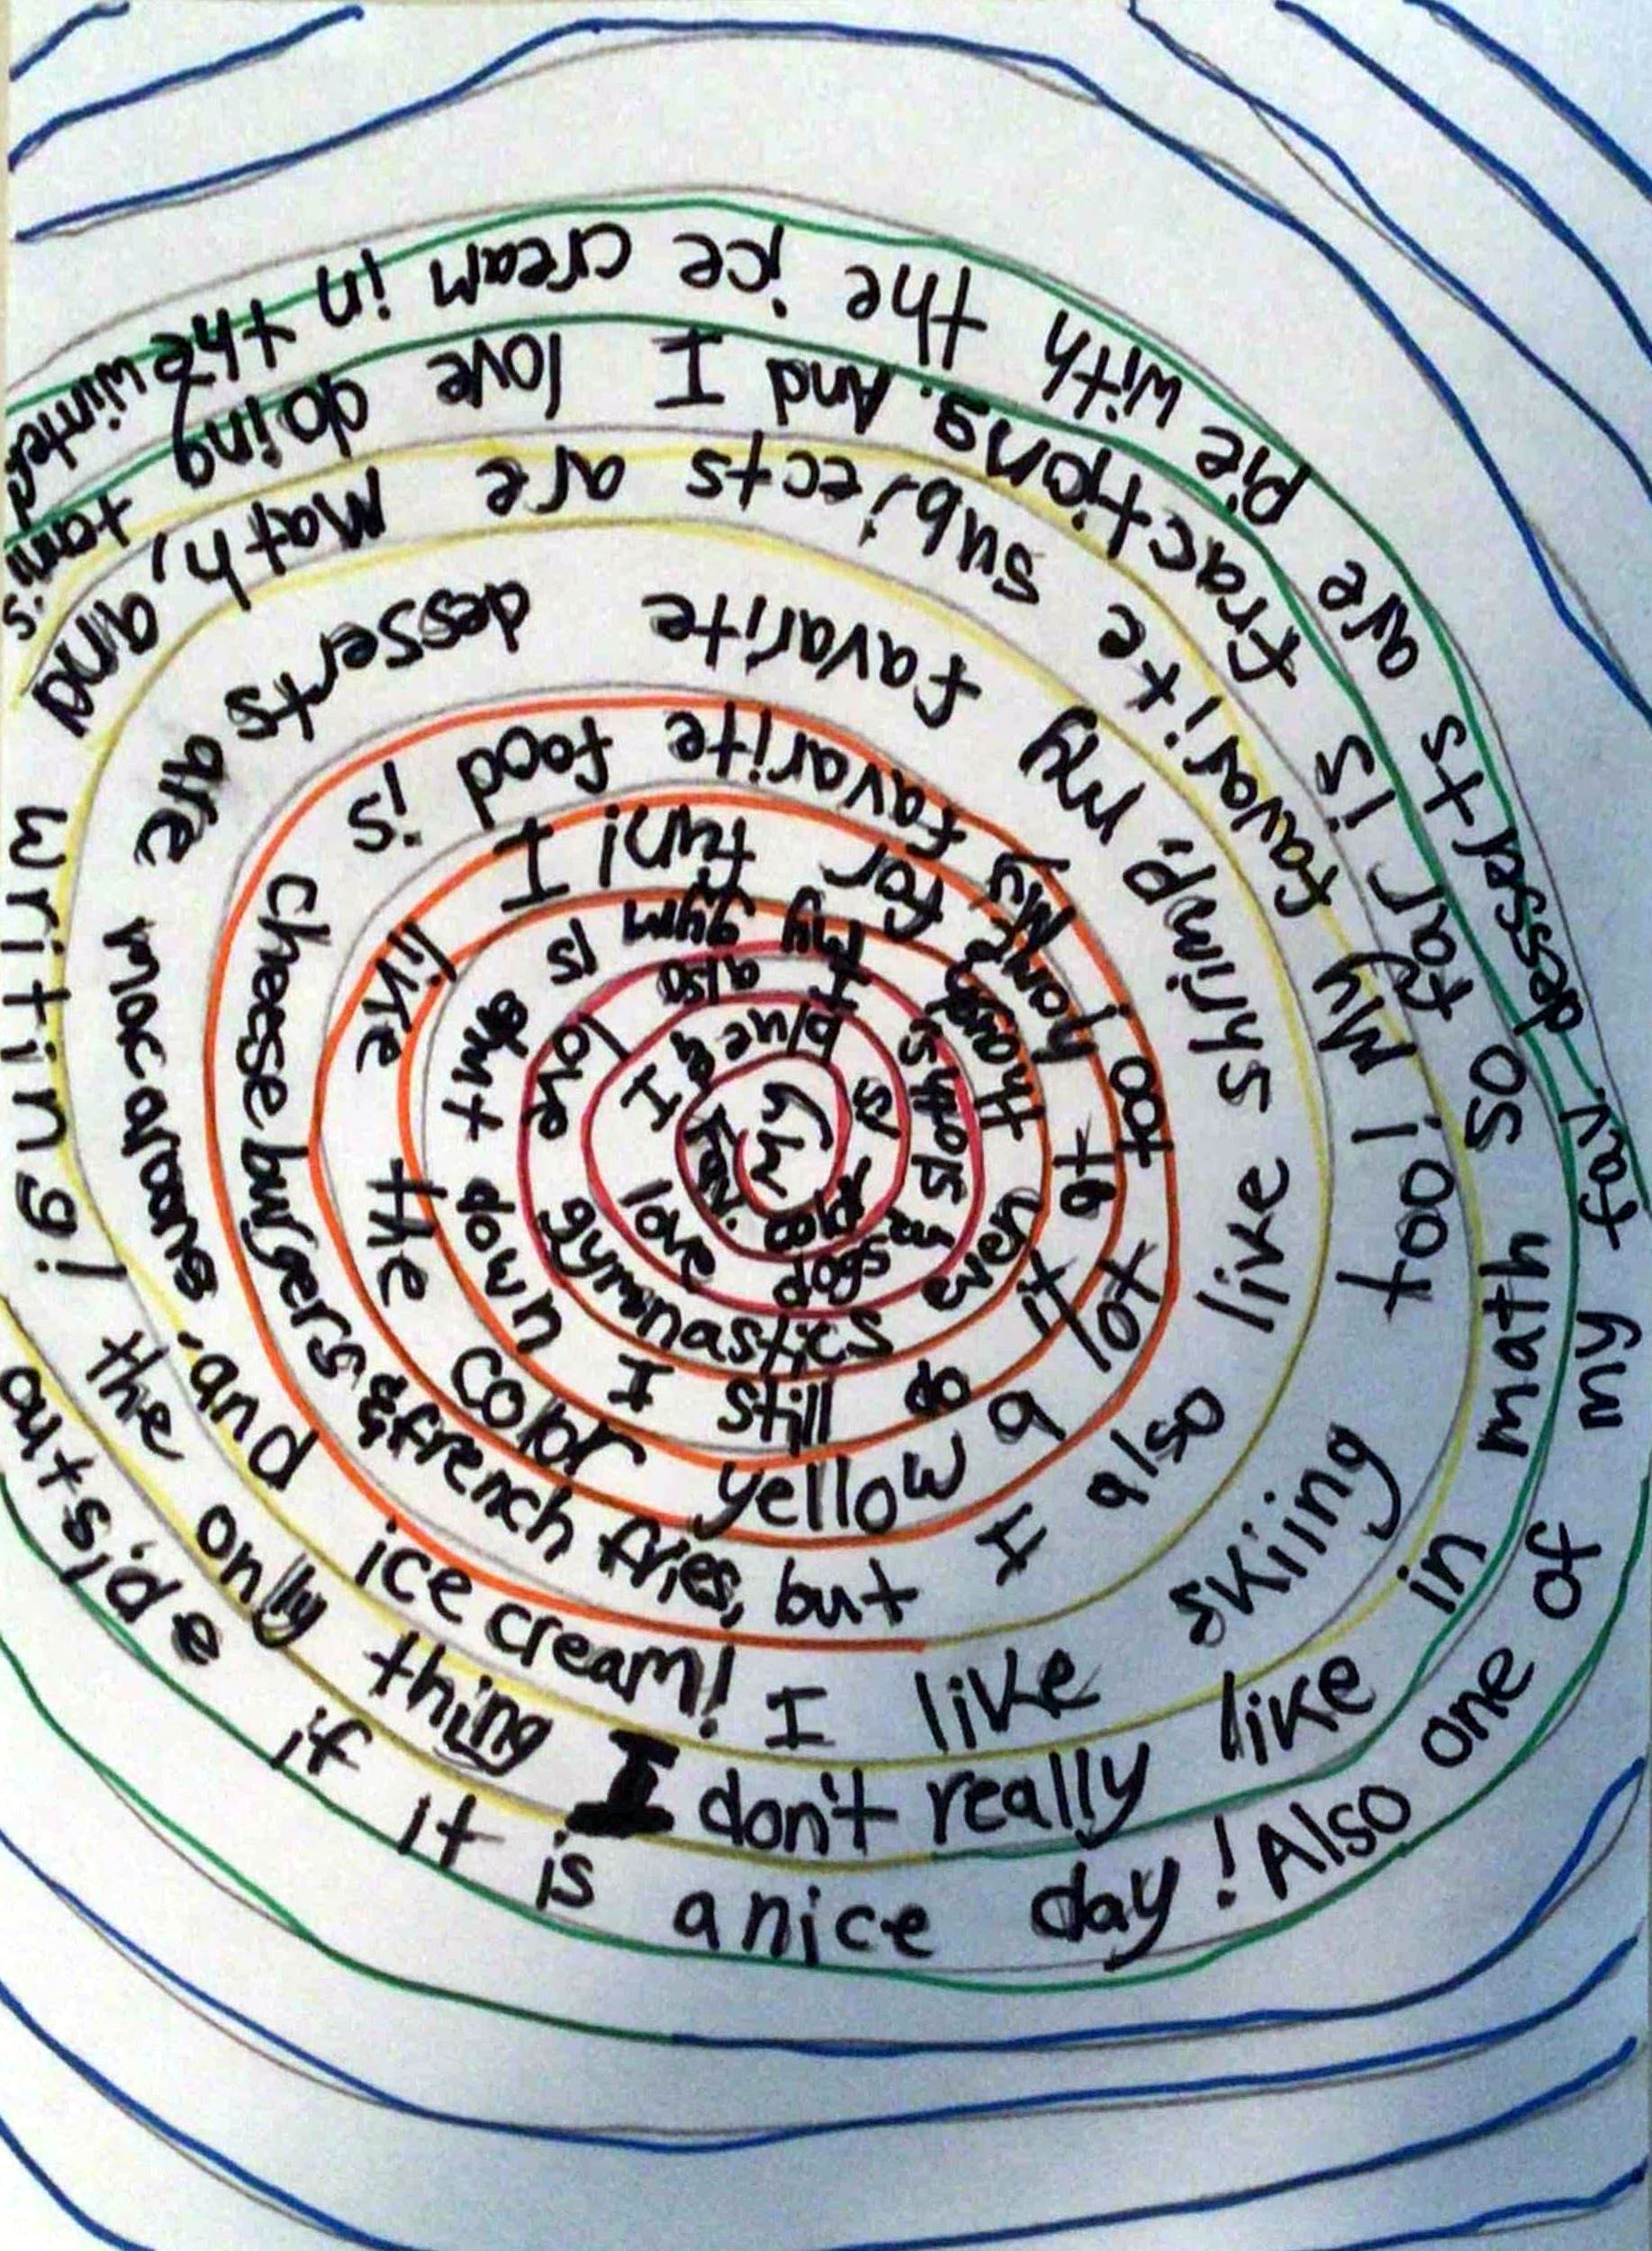 My fav. is blue & I love dogs I also love gymnastics even though my gym is shut down I still do it at home for fun! I like the color yellow a lot too! My favorite food is cheeseburgers & french fries, but I also like shrimp, my favorite desserts are macaroons, and ice cream! I like skiing too! My favorite subjects are Math, and writing! the only thing I don't really like in math so far is fractions. And I love doing outside if it is a nice day! Also one of my fav. desserts are pie with the ice cream in the